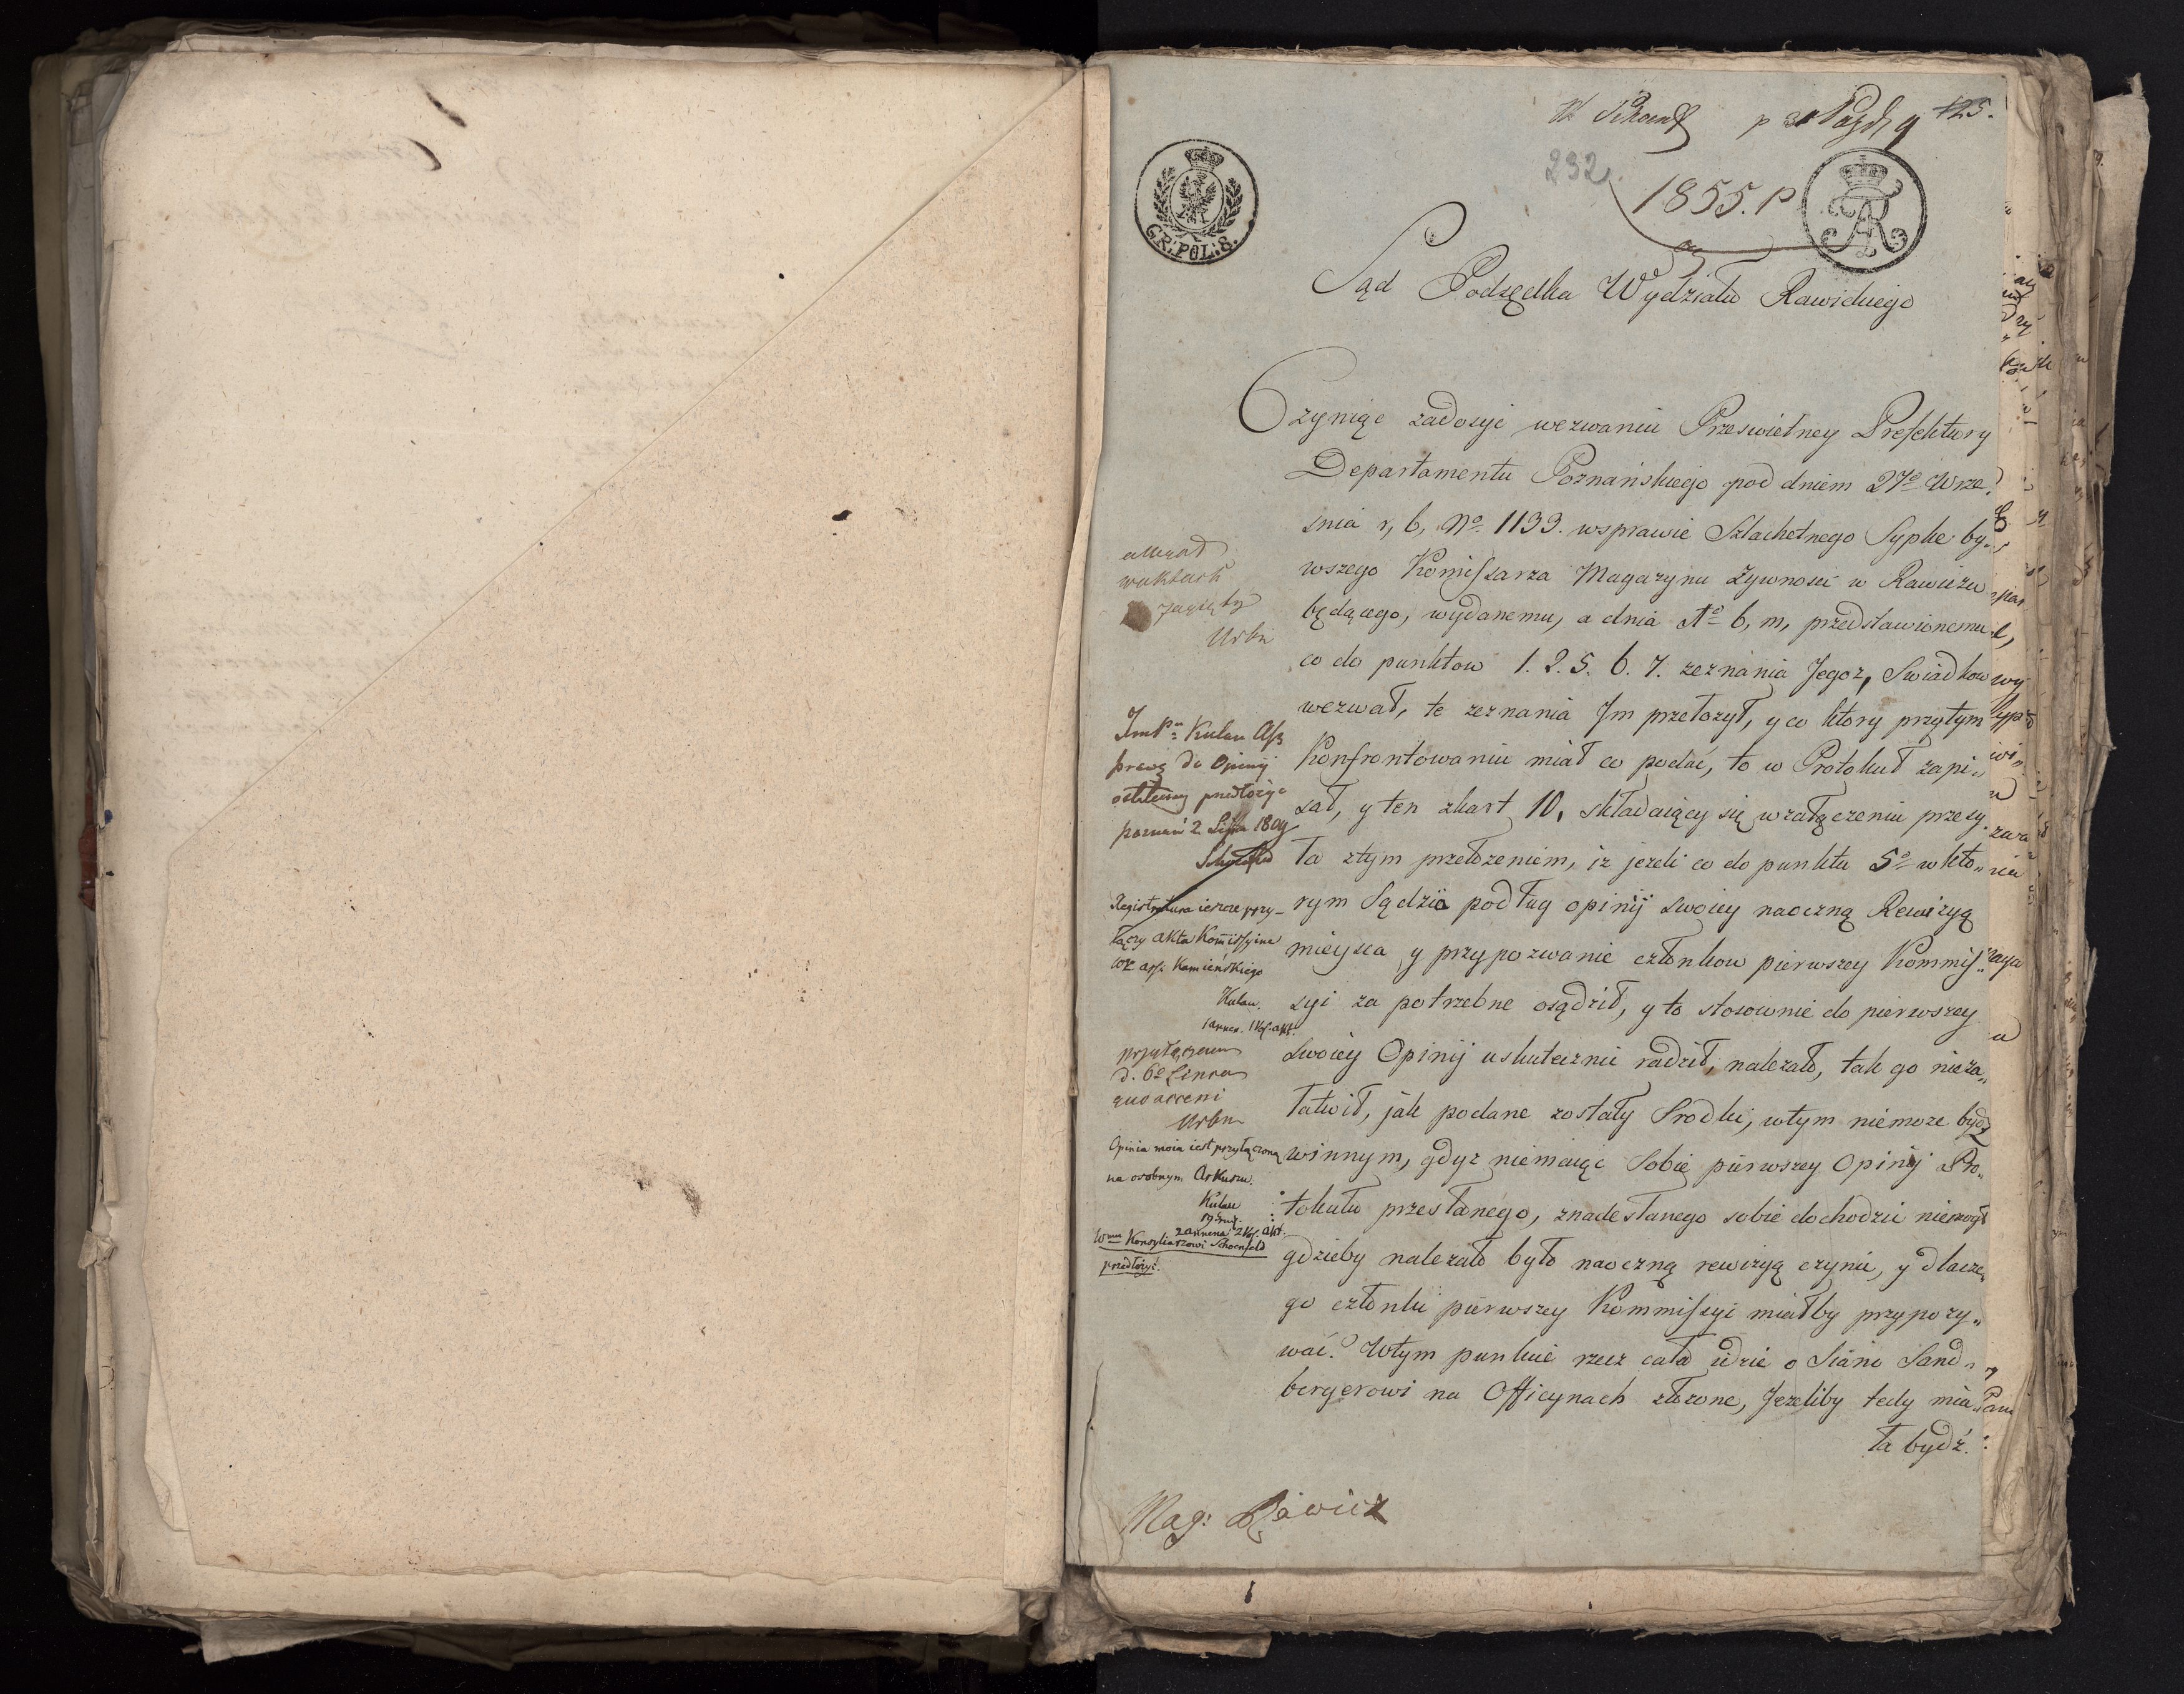 125.
232.
1855. p
GR: POL: 8.
Sąd Podsędka Wydziału Rawickiego
Czyniąc zadosyć wezwaniu Przeswietney Prefektury
Departamentu Poznańskiego pod dniem 27º Wrze„
snia r, b, Nº 1133. wsprawie Szlachetnego Sypke by„
wszego Komissarza Magazynu żywnosci w Rawiczu
będącego, wydanemu, a dnia b, m, przedstawionemu
co do punktow 1. 2. 5. 6. 7. zeznania Jegoz, Swiadkow
wezwał, te zeznania Im przełozył, y co ktory przytym
Konfrontowaniu miał co podać, to w Protokuł zapi„
sał, y ten zkart 10, składaiący się wzałączeniu przesy
ła ztym przełozeniem, iz jezeli co do punktu 5º wkto„
rym Sądzia podług opinij swoiey naoczną Rewizyą
mieysca y przypozwanie członkow pierwszey Kommis„
syi za potrzebne osądził, y to stosownie do pierwszey
swoiey Opinij uskutecznić radził, nalezało, tak go nieza„
łatwił, jak podane zostały Srodki, wtym niemoze bydz
winnym, gdyz niemaiąc Sobie pierwszey Opinij Pro„
tokułu przesłanego, znadesłanego sobie dochodzić niemogł
gdzieby nalezało było naoczną rewizyą czynić, y dlacze„
go członki pierwszey Kommissyi miałby przypozy„
wać. Wtym punkcie rzecz cała idzie o Siano Sand„
bergerowi na Officynach złozone, Jezeliby tedy mia„
ła bydź.
ImPn Kulau Ass
prawą do Opinij
przedłożyć
poznań 2 1809
Registratura ieszcze przy-
łączy akta Komissyine
Kamieńskiego
Kulau.
d. 6º
Opinia moia iest przyłączoną
na osobnym Arkuszu.
Kulau
Konsyliarzowi Schoenfeld
przedłożyć.
Mag: Rawicz